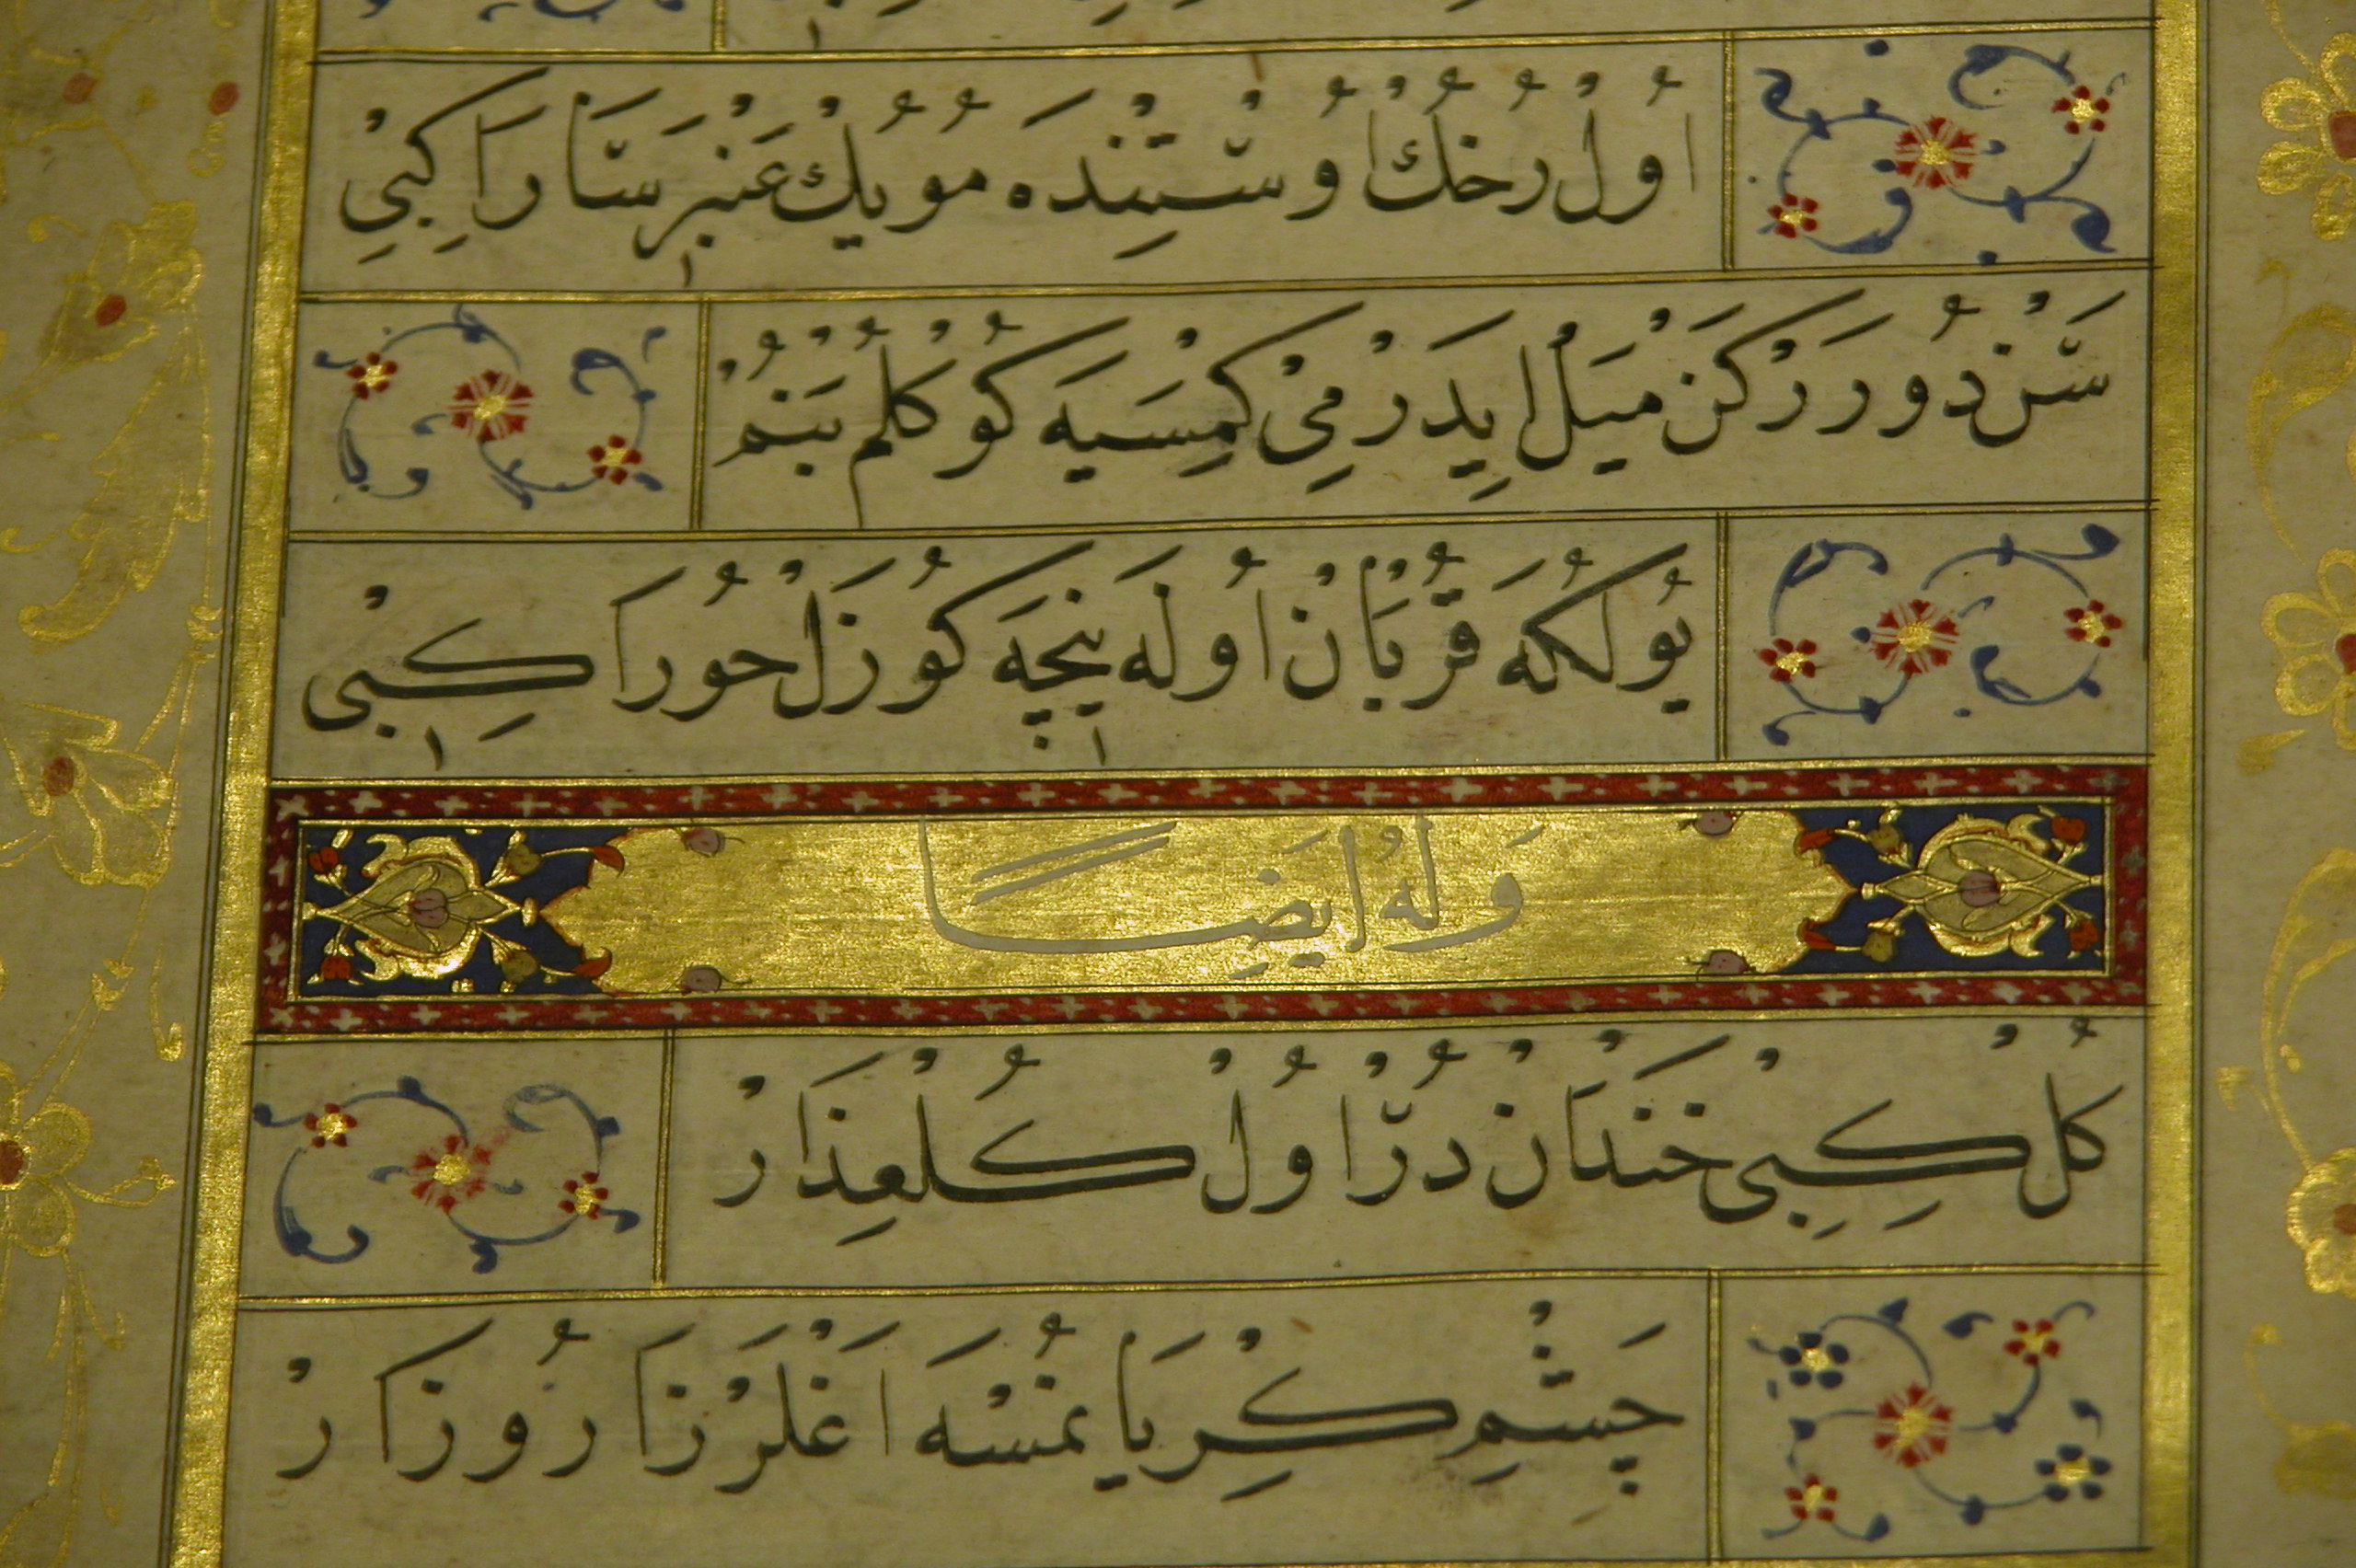 اُولْ رُخُكْ اُوسْتِنْدَه مُويُكْ عَنْبَرِ سَارَا كِبِيْ
سَنْ دُورَرْكَنْ مَيْلْ اِيدَرْمِيْ كِمْسَيَه كُوكُلُمْ بَنُمْ
يُولُكُه قُرْبَانْ اُولَه نِيچَه كُوزَلْ حُورَا كِبْي
وَلَهُ اَيضًا
كُلْ كِبِى خَنْدَانْ دُرْ اُولْ كُلْعِذَارْ
چَشْمِ كِرْيَا نُمْسَه اَغْلَرْ زَارُ و زَارْ